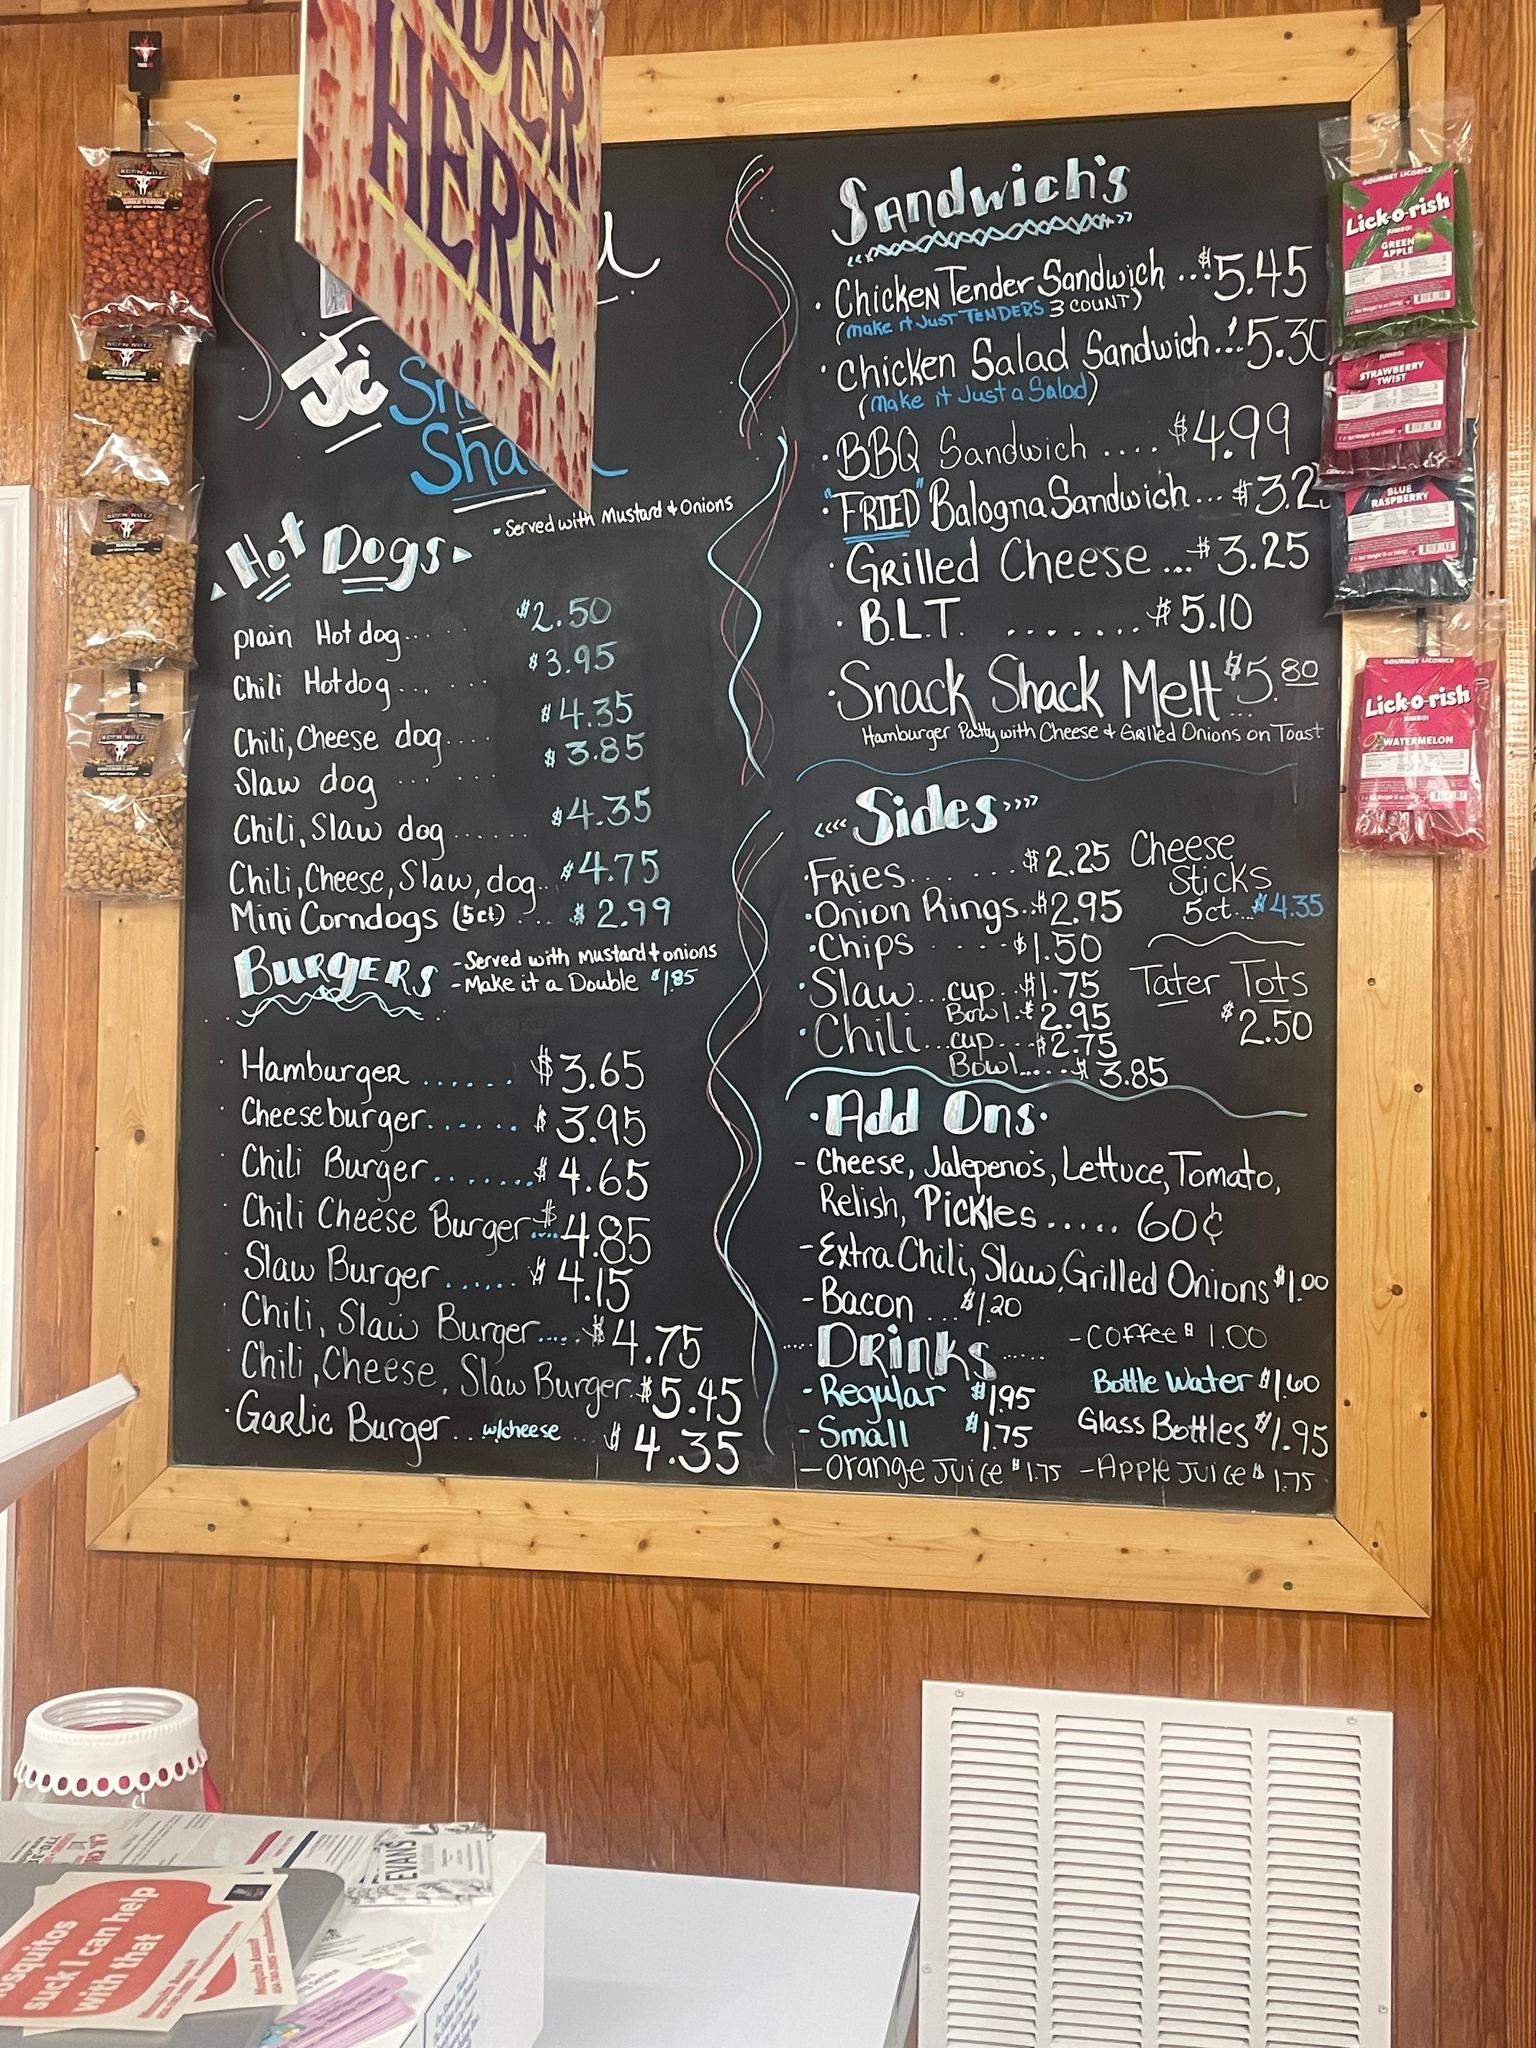 HERE
Hot Dogs
- Served with Mustard & Onions
plain Hot dog..... $2.50
Chili Hotdog... $3.95
Chili, Cheese dog.... $4.35
Slaw dog .... $3.85
Chili, Slaw dog ...... $4.35
Chili, Cheese, Slaw, dog.. $4.75
Mini Corndogs (5ct) ... $2.99
BURGERS
- Served with mustard & onions
- Make it a Double $1.85
Hamburger ...... $3.65
Cheeseburger...... $3.95
Chili Burger....... $4.65
Chili Cheese Burger.... $4.85
Slaw Burger ..... $4.15
Chili, Slaw Burger..... $4.75
Chili, Cheese, Slaw Burger. $5.45
Garlic Burger .. w/cheese ... $4.35
Sandwich's
· Chicken Tender Sandwich ... $5.45
(make it Just TENDERS 3 COUNT)
· Chicken Salad Sandwich... $5.30
(Make it Just a Salad)
· BBQ Sandwich .... $4.99
· "FRIED" Balogna Sandwich...
· Grilled Cheese ... $3.25
· B.L.T. ....... $5.10
· Snack Shack Melt ... $5.80
Hamburger Patty with Cheese & Grilled Onions on Toast
Sides
· Fries....... $2.25
· Onion Rings.. $2.95
· Chips ..... $1.50
· Slaw... cup.. $1.75
Bowl. $2.95
· Chili... cup... $2.75
Bowl..... $3.85
Cheese
Sticks
5ct... $4.35
Tater Tots
$2.50
· Add Ons ·
- Cheese, Jalepeno's, Lettuce, Tomato,
Relish, Pickles ..... 60¢
- Extra Chili, Slaw, Grilled Onions $1.00
- Bacon ... $1.20
Drinks
- Regular $1.95
- Small $1.75
- Orange Juice $1.75
- Coffee $1.00
Bottle Water $1.60
Glass Bottles $1.95
- Apple Juice $1.75
KORN NUTZ
KORN NUTZ
KORN NUTZ
KORN NUTZ
GOURMET LICORICE
Lick-o-rish
JUMBO!
GREEN
APPLE
JUMBO!
STRAWBERRY
TWIST
BLUE
RASPBERRY
GOURMET LICORICE
Lick-o-rish
JUMBO!
WATERMELON
EVANS
suck I can help
with that
Mosquito Assault